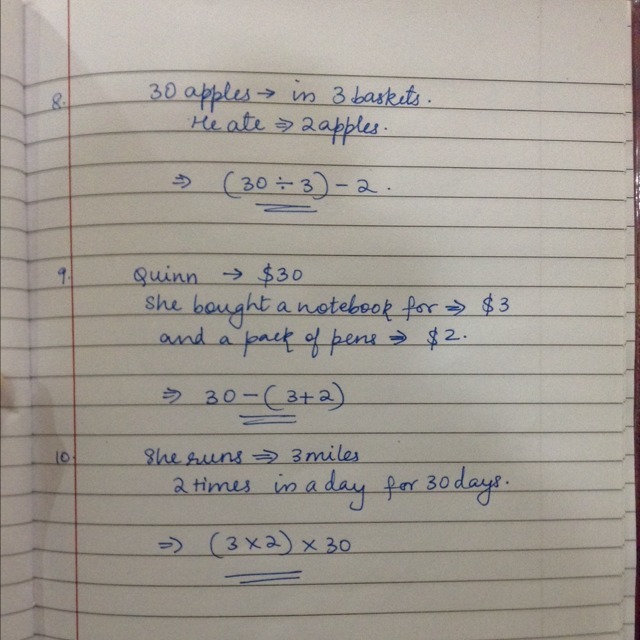 8. 30 apples → in 3 baskets.
He ate ⇒ 2 apples.
⇒ (30 ÷ 3) - 2.
9. Quinn → $30
She bought a notebook for ⇒ $3
and a pack of pens ⇒ $2.
⇒ 30 - (3+2)
10. She runs ⇒ 3 miles
2 times in a day for 30 days.
⇒ (3 × 2) × 30